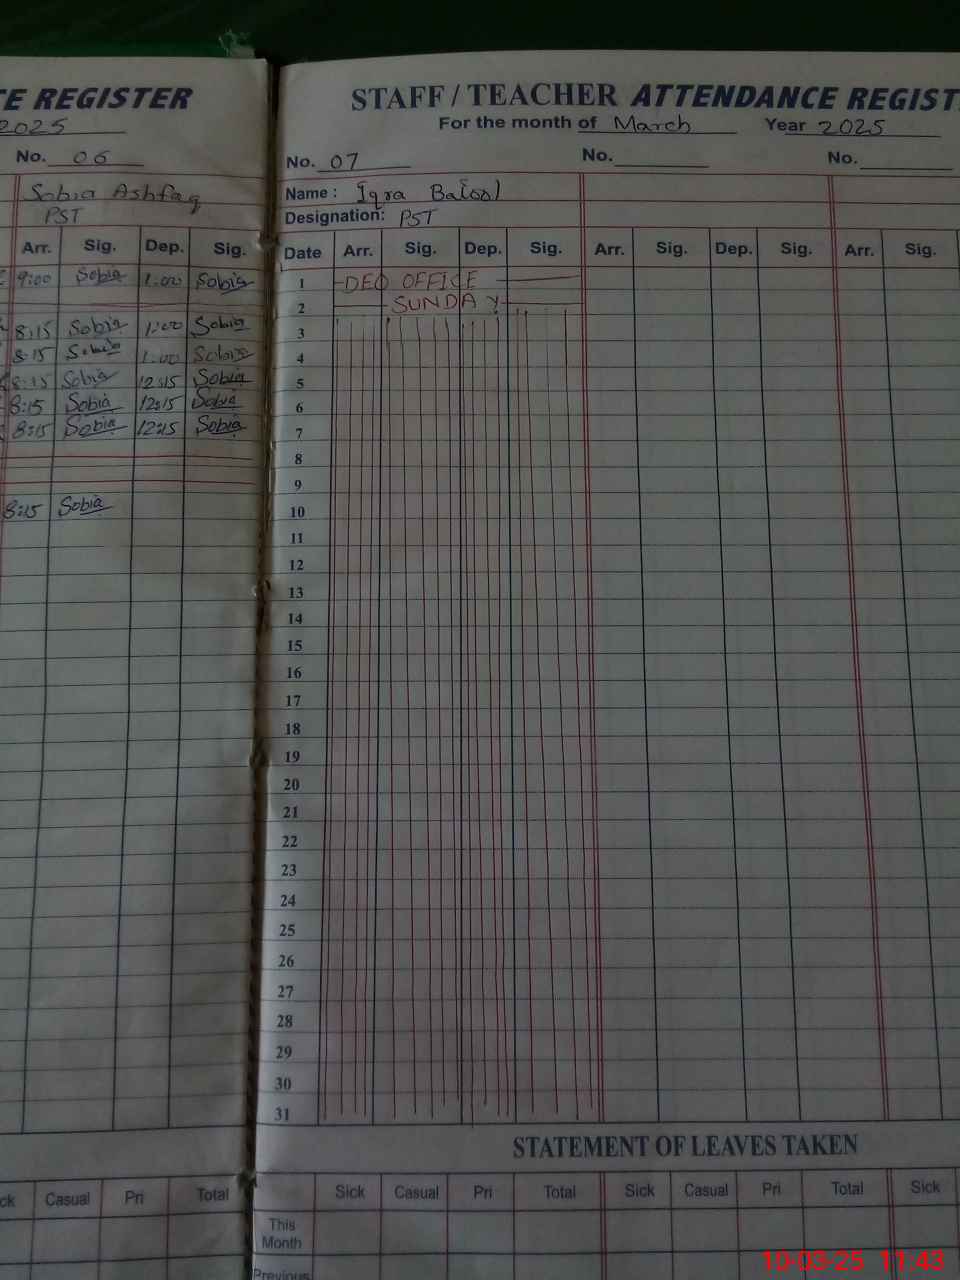 CE REGISTER
2025
No. 06
Sobia Ashfaq
PST
Arr. Sig. Dep. Sig.
9:00 Sobia 1:00 Sobia
8:15 Sobia 1:00 Sobia
8:15 Sobia 1:00 Sobia
8:15 Sobia 12:15 Sobia
8:15 Sobia 12:15 Sobia
8:15 Sobia 12:15 Sobia
8:15 Sobia
Casual Pri Total
STAFF / TEACHER ATTENDANCE REGIST
For the month of March Year 2025
No. 07 No. No.
Name : Iqra
Designation: PST
Date Arr. Sig. Dep. Sig. Arr. Sig. Dep. Sig. Arr. Sig.
1 DEO OFFICE
2 SUNDAY
3
4
5
6
7
8
9
10
11
12
13
14
15
16
17
18
19
20
21
22
23
24
25
26
27
28
29
30
31
STATEMENT OF LEAVES TAKEN
Sick Casual Pri Total Sick Casual Pri Total Sick
This
Month
Previous
10-03-25 11:43